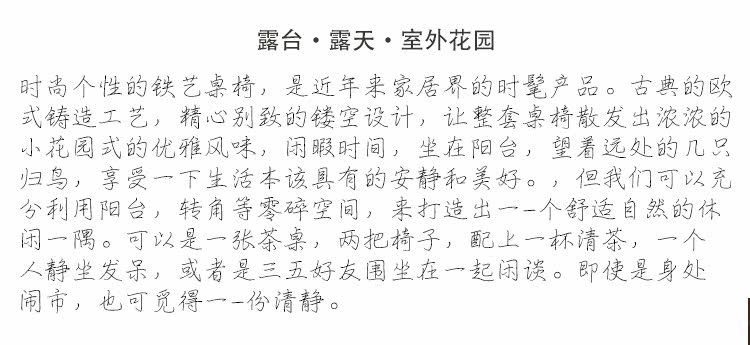 露台·露天·室外花园
时尚个性的铁艺桌椅，是近年来家居界的时髦产品。古典的欧
式铸造工艺，精心别致的镂空设计，让整套桌椅散发出浓浓的
小花园式的优雅风味，闲暇时间，坐在阳台，望着远处的几只
归鸟，享受一下生活本该具有的安静和美好。，但我们可以充
分利用阳台，转角等零碎空间，来打造出一-个舒适自然的休
闲一隅。可以是一张茶桌，两把椅子，配上一杯清茶，一个
人静坐发呆，或者是三五好友围坐在一起闲谈。即使是身处
闹市，也可觅得一-份清静。